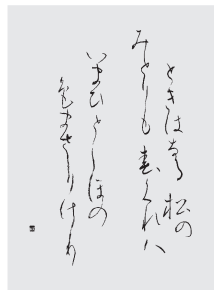 ときはなる松の
みどりも春くれハ
いまひとしほの
色まさりけり